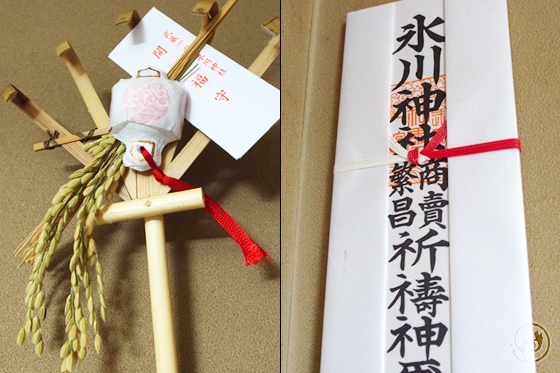 武蔵一 氷川神社
開 福守
氷川神社商賣繁昌祈禱神